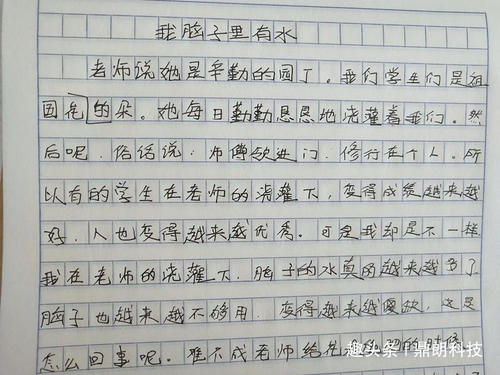 我脑子里有水
老师说她是辛勤的园丁。我们学生们是祖
国花的朵。她每日勤勤恳恳地浇灌着我们。然
后呢,俗话说:师傅进门,修行在个人。所
以有的学生在老师的浇灌下,变得成绩越来越
好,人也变得越来越优秀。可是我却是不一样
我在老师的浇灌下,脑子的水真的越来越多了
脑子也越来越不够用,变得越来越傻缺,这是
怎么回事呢。难不成老师给花的时候
趣头条 | 鼎朗科技